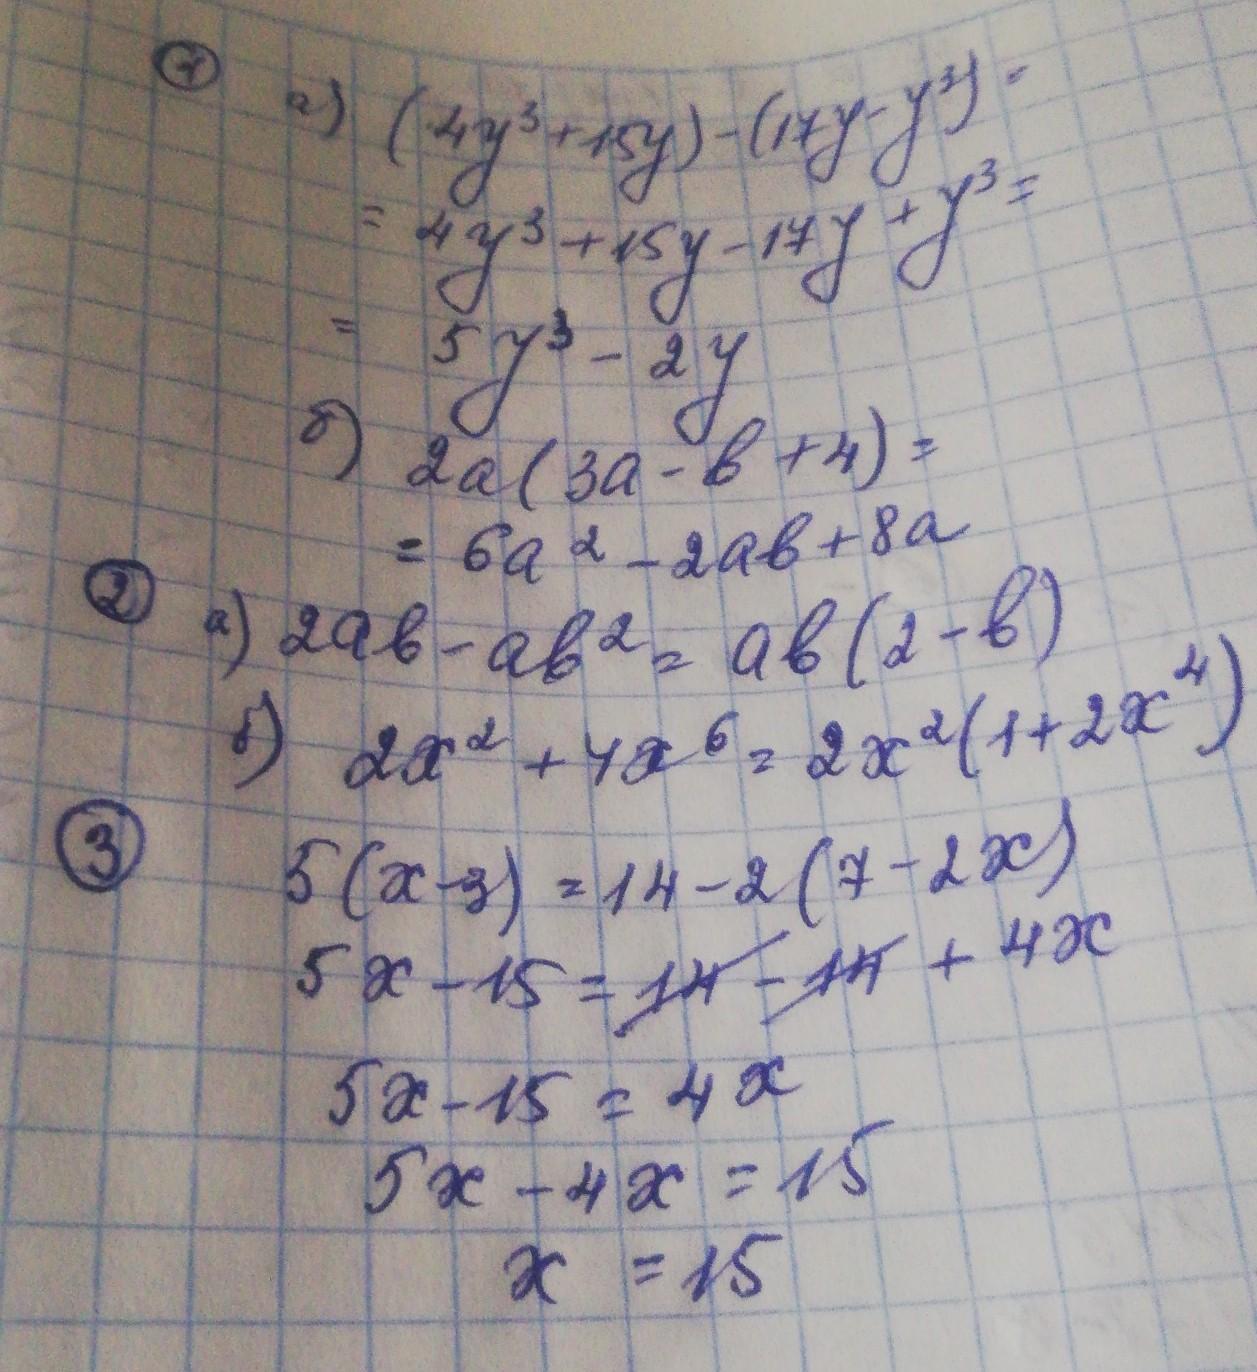 1 а) (4y³+15y)-(17y-y³)=
= 4y³+15y-17y+y³=
= 5y³-2y
б) 2a(3a-b+4)=
= 6a²-2ab+8a
2 а) 2ab-ab²=ab(2-b)
б) 2x²+4x⁶=2x²(1+2x⁴)
3 5(x-3)=14-2(7-2x)
5x-15=14-14+4x
5x-15=4x
5x-4x=15
x=15